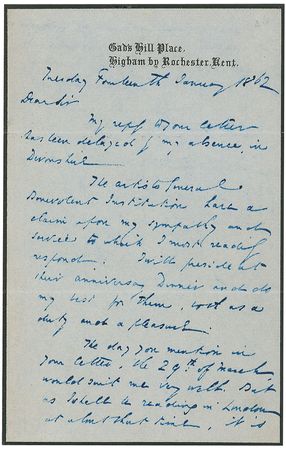 Gad's Hill Place,
Higham by Rochester, Kent.
Tuesday Fourteenth January 1862
Dear Sir
My reply to your letter
has been delayed by my absence in
Devonshire
The Artists General
Benevolent Institution have a
claim upon my sympathy and
services to which I most readily
respond. I will preside at
their anniversary Dinner and do
my best for them, both as a
duty and a pleasure.
The day you mention in
your letter, the 29th of March
would suit me very well. But
as I shall be reading in London
at about that time, it is